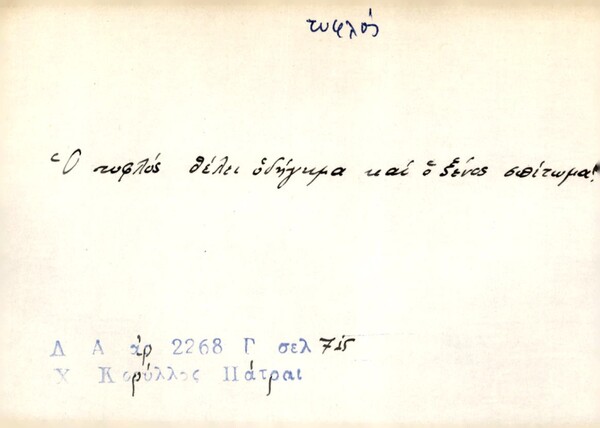 τυφλός
Ὁ τυφλός θέλει ὁδήγημα καί ὁ ξένος σπίτωμα!
Λ Α ἀρ 2268 Γ σελ 715
Χ Κορύλλος Πάτραι